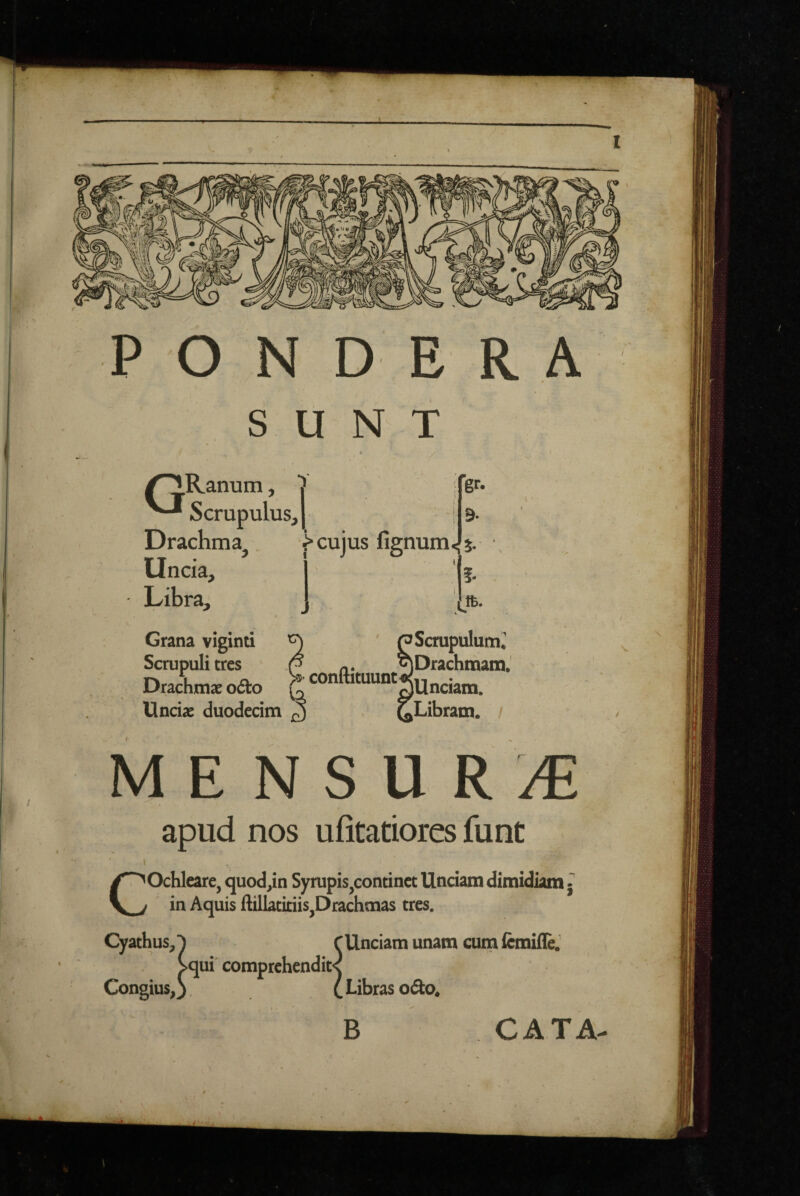 1
PONDERA
SUNT
GRanum, } cujus ſignum { gr.
Scrupulus, ℈.
Drachma, ʒ.
Uncia, ℥.
Libra, ℔.
Grana viginti } conſtituunt { Scrupulum.
Scrupuli tres Drachmam.
Drachmæ octo Unciam.
Unciæ duodecim Libram.
MENSURÆ
apud nos uſitatiores ſunt
COchleare, quod,in Syrupis,continet Unciam dimidiam;
in Aquis ſtillatitiis,Drachmas tres.
Cyathus, } qui comprehendit { Unciam unam cum ſemiſſe.
Congius, Libras octo.
B CATA-